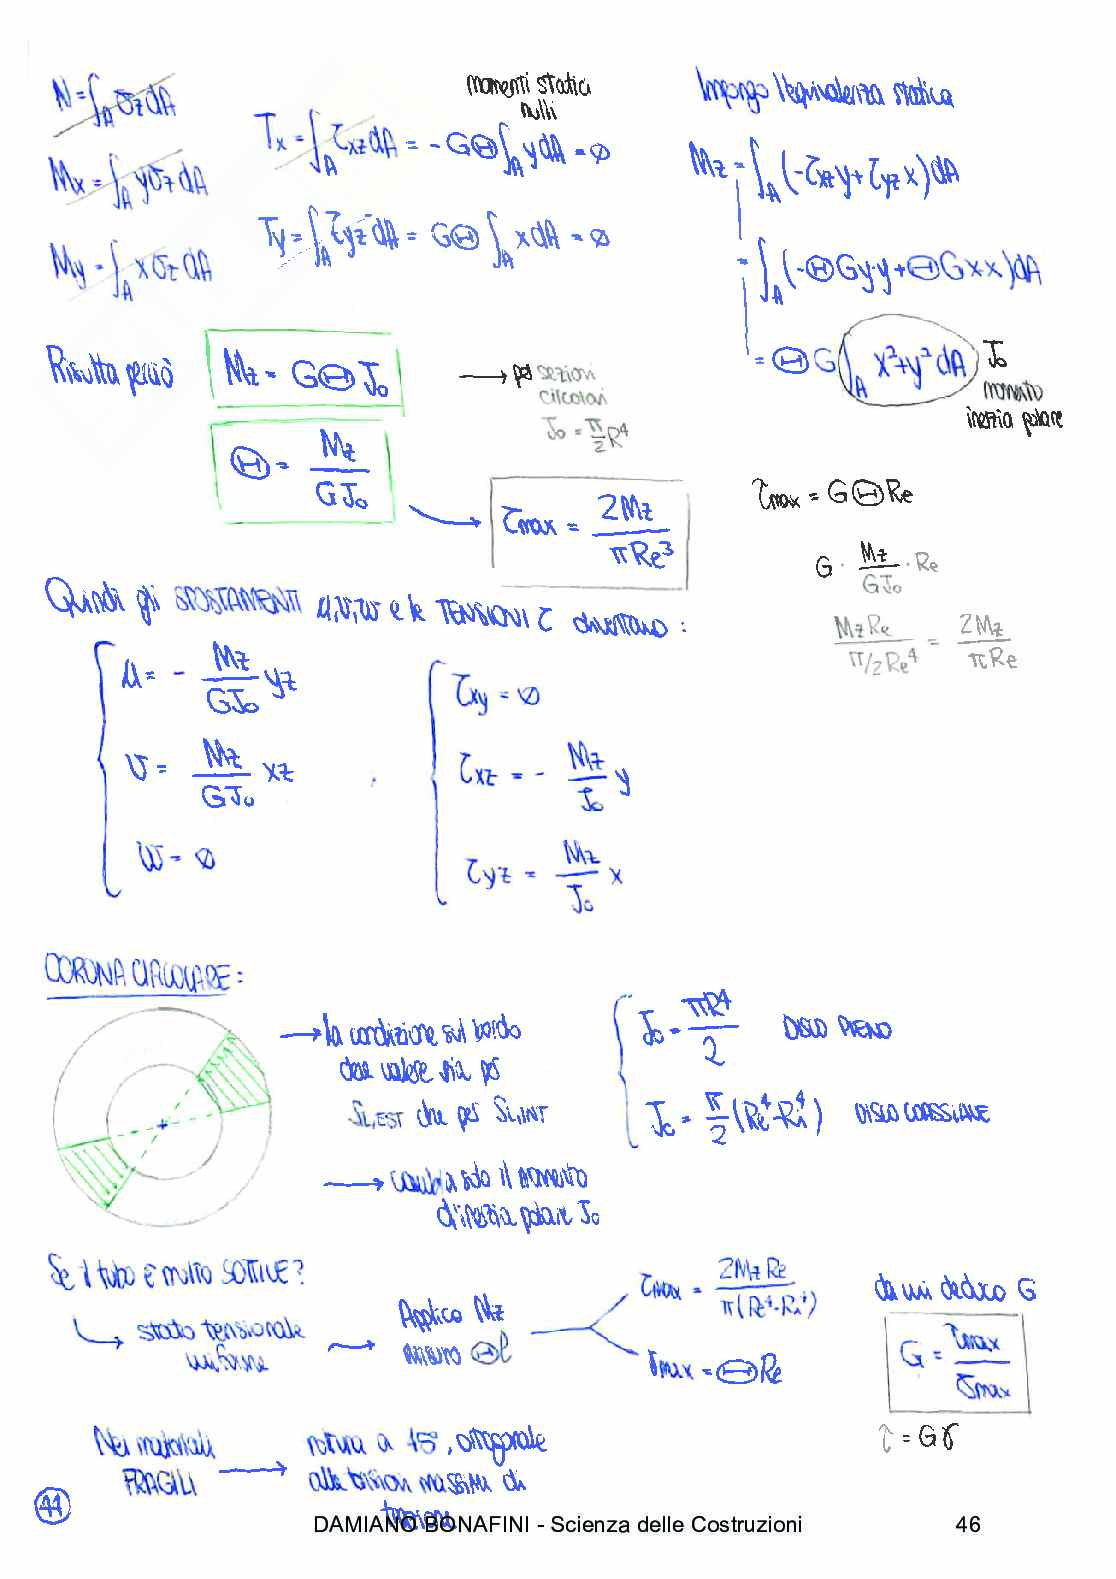 N = ∫_A σz dA
Mx = ∫_A yσz dA
My = ∫_A xσz dA
momenti statici
nulli
Tx = ∫_A τxz dA = -GΘ∫_A y dA = ∅
Ty = ∫_A τyz dA = GΘ∫_A x dA = ∅
Impongo l'equivalenza statica
Mz = ∫_A (-τxz y + τyz x) dA
= ∫_A (-ΘGy·y + ΘGx x) dA
= ΘG ∫_A x²+y² dA J₀
momento
inerzia polare
Risulta perciò Mz = GΘJ₀
→ per sezioni
circolari
J₀ = π/2 R⁴
Θ = Mz/GJ₀
τmax = 2Mz/πRe³
τmax = GΘRe
G · Mz/GJ₀ · Re
MzRe/π/2Re⁴ = 2Mz/πRe
Quindi gli SPOSTAMENTI u,v,w e le TENSIONI τ diventano:
u = - Mz/GJ₀ yz
v = Mz/GJ₀ xz
w = ∅
τxy = ∅
τxz = - Mz/J₀ y
τyz = Mz/J₀ x
CORONA CIRCOLARE:
→ la condizione sul bordo
deve valere sia per
SL,EST che per SL,INT
→ cambia solo il momento
d'inerzia polare J₀
J₀ = πR⁴/2 DISCO PIENO
J₀ = π/2 (Re⁴-Ri⁴) DISCO COASSIALE
Se il tubo è molto SOTTILE?
↳ stato tensionale
uniforme
→ Applico Mz
misuro Θl
τmax = 2MzRe/π(Re⁴-Ri⁴)
γmax = ΘRe
da cui deduco G
G = τmax/γmax
τ = Gγ
Nei materiali
FRAGILI
→ rottura a 45°, ortogonale
alle tensioni massime di
trazione
44
DAMIANO BONAFINI - Scienza delle Costruzioni
46